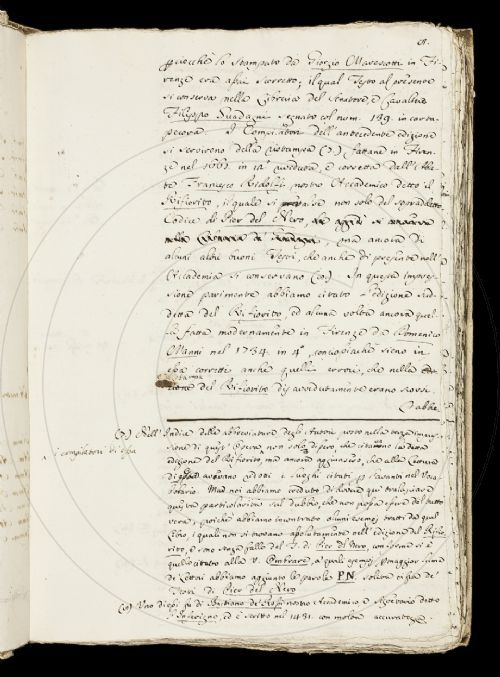 perciocchè lo stampato da Giorgio Marescotti in Fi-
renze era assai scorretto; il qual Testo al presente
si conserva nella Libreria del Senatore, e Cavaliere
Filippo Guadagni segnato col num. 189. in carta-
pecora. I Compilatori dell'antecedente edizione
si servirono della ristampa (7.) fattane in Firen-
ze nel 1661. in 12° riveduta e corretta dall'Aba-
te Francesco Ridolfi nostro Accademico detto il
Rifiorito, il quale si valse non solo del sopraddetto
Codice di Pier del Nero,
ma ancora di
alcuni altri buoni Testi, che anche di presente nell'
Accademia si conservano (10.). In questa impres-
sione parimente abbiamo citato l'edizione sud-
detta del Rifiorito, ed alcuna volta ancora quel-
la fatta modernamente in Firenze da Domenico
Manni nel 1734. in 4°, conciossiachè sieno in
essa corretti anche quelli errori, che nella
zione del Rifiorito disavvedutamente erano scorsi
Crabbe
(7.) Nell'Indice delle abbreviature degli Autori posto nella impres-
i compilatori di essa
sione di quest'Opera non solo si dice, che
edizione del Rifiorito, ma ancora che alle
di avevano ridotti i luoghi citati per l'avanti nel Voca-
bolario. Ma noi abbiamo creduto di dover qui tralasciare
questa particolarità sul dubbio, che non possa essere del tutto
vera; poichè abbiamo incontrato alcuni esempi tratti da quel
libro, i quali non si trovano assolutamente nell'edizione del Rifio-
rito, e sono senza fallo del T. di Pier del Nero, conforme si è
quello citato alla V. a' quali esempi, per maggior lume
de' Lettori abbiamo aggiunto le parole P.N. solita cifra de'
Testi di Pier del Nero
(10.) Uno di essi fu di Bastiano de' Rossi nostro Accademico e Segretario detto
l'Inferigno, ed è scritto nel 1431. con molta accuratezza.